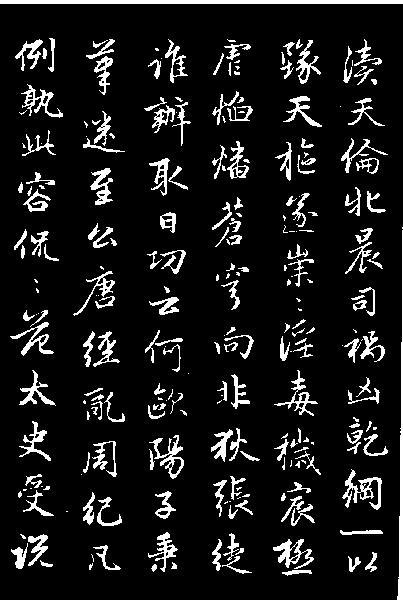 瀆天倫牝晨司禍凶乾綱一以
墜天樞遂崇〻淫毒穢宸極
虐焰燔蒼穹向非狄張徒
誰辦取日功云何歐陽子秉
筆迷至公唐經亂周紀凡
例孰此容侃〻范太史受説